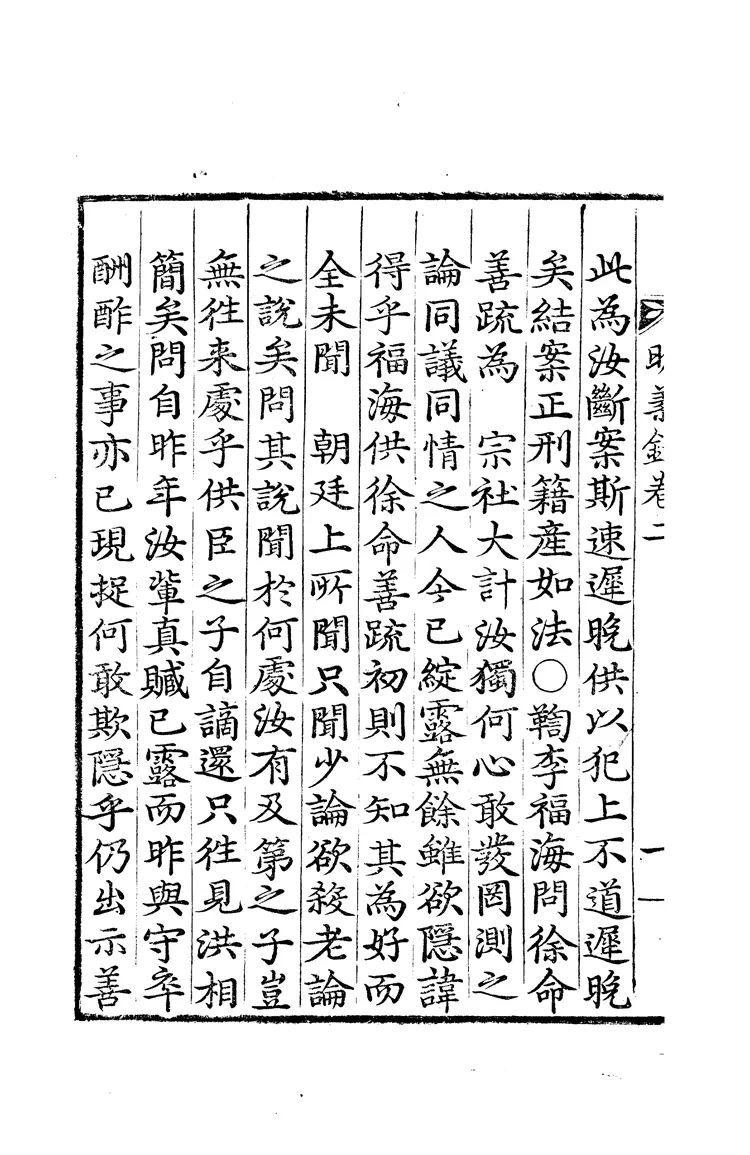 明義錄卷二
一
此為汝斷案斯速遲晚供以犯上不道遲晚
矣結案正刑籍產如法○鞫李福海問徐命
善疏為 宗社大計汝獨何心敢發罔測之
論同議同情之人今已綻露無餘雖欲隱諱
得乎福海供徐命善疏初則不知其為好而
全未聞 朝廷上所聞只聞少論欲殺老論
之說矣問其說聞於何處汝有及第之子豈
無徃来處乎供臣之子自謫還只徃見洪相
簡矣問自昨年汝軰真贓已露而昨與守卒
酬酢之事亦已現捉何敢欺隱乎仍出示善